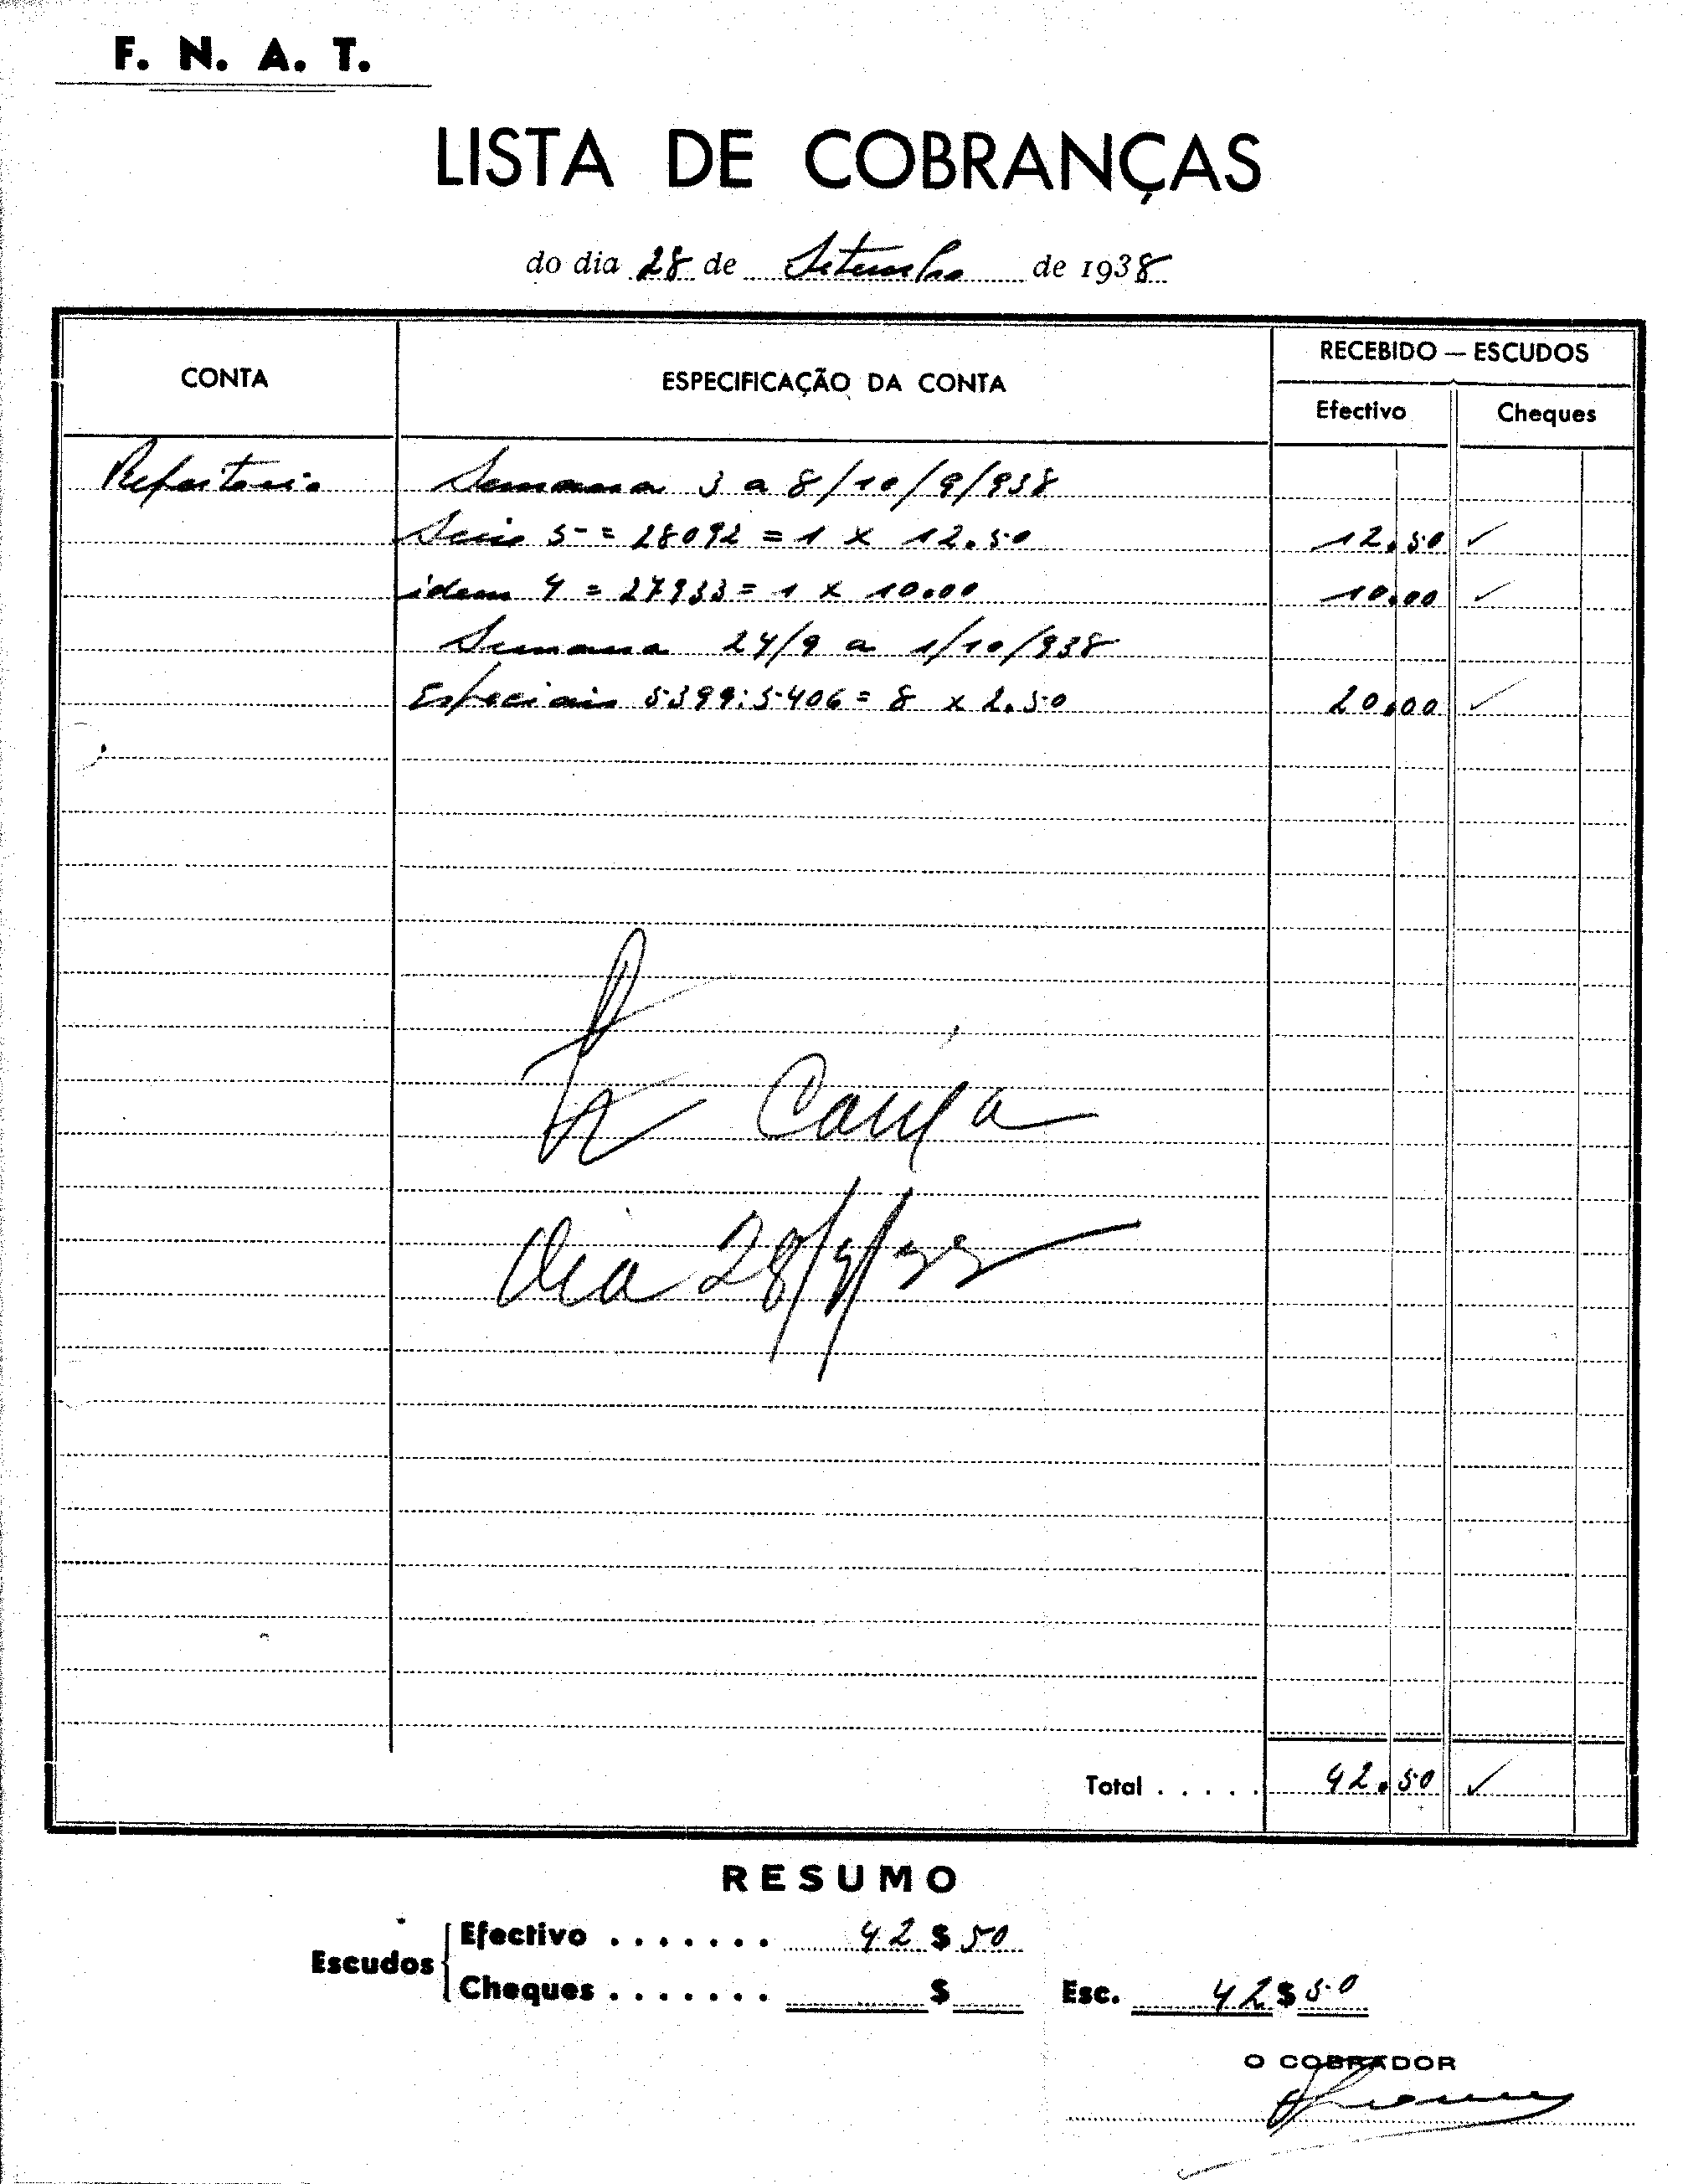 F. N. A. T.
LISTA DE COBRANÇAS
do dia 28 de Setembro de 1938
CONTA
ESPECIFICAÇÃO DA CONTA
RECEBIDO — ESCUDOS
Efectivo
Cheques
Refeitorio Semana 3 a 8/10/9/938
5 = 28092 = 1 x 12.50 12.50 ✓
idem 4 = 27933 = 1 x 10.00 10.00 ✓
Semana 24/9 a 1/10/938
Especiais 5399:5406 = 8 x 2.50 20.00 ✓
Caixa
dia 28/9/38
Total . . . . . 42.50 ✓
RESUMO
Escudos
Efectivo . . . . . . . 42 $ 50
Cheques . . . . . . . $ Esc. 42 $ 50
O COBRADOR